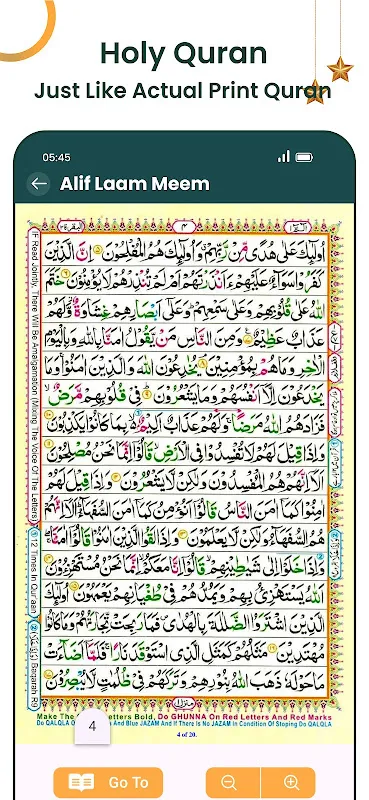 Holy Quran
Just Like Actual Print Quran
05:45
Alif Laam Meem
اُولٰٓئِكَ عَلٰى هُدًى مِّنْ رَّبِّهِمْ وَاُولٰٓئِكَ هُمُ الْمُفْلِحُوْنَ ۝ اِنَّ الَّذِيْنَ
كَفَرُوْا سَوَآءٌ عَلَيْهِمْ ءَاَنْذَرْتَهُمْ اَمْ لَمْ تُنْذِرْهُمْ لَا يُؤْمِنُوْنَ ۝ خَتَمَ
اللّٰهُ عَلٰى قُلُوْبِهِمْ وَعَلٰى سَمْعِهِمْ وَعَلٰٓى اَبْصَارِهِمْ غِشَاوَةٌ وَّلَهُمْ
عَذَابٌ عَظِيْمٌ ۝ وَمِنَ النَّاسِ مَنْ يَّقُوْلُ اٰمَنَّا بِاللّٰهِ وَبِالْيَوْمِ
الْاٰخِرِ وَمَا هُمْ بِمُؤْمِنِيْنَ ۝ يُخٰدِعُوْنَ اللّٰهَ وَالَّذِيْنَ اٰمَنُوْا وَمَا
يَخْدَعُوْنَ اِلَّآ اَنْفُسَهُمْ وَمَا يَشْعُرُوْنَ ۝ فِيْ قُلُوْبِهِمْ مَّرَضٌ
فَزَادَهُمُ اللّٰهُ مَرَضًا وَلَهُمْ عَذَابٌ اَلِيْمٌ بِمَا كَانُوْا يَكْذِبُوْنَ ۝
وَاِذَا قِيْلَ لَهُمْ لَا تُفْسِدُوْا فِى الْاَرْضِ قَالُوْٓا اِنَّمَا نَحْنُ مُصْلِحُوْنَ
اَلَآ اِنَّهُمْ هُمُ الْمُفْسِدُوْنَ وَلٰكِنْ لَّا يَشْعُرُوْنَ ۝ وَاِذَا قِيْلَ لَهُمْ
اٰمِنُوْا كَمَآ اٰمَنَ النَّاسُ قَالُوْٓا اَنُؤْمِنُ كَمَآ اٰمَنَ السُّفَهَآءُ اَلَآ اِنَّهُمْ
هُمُ السُّفَهَآءُ وَلٰكِنْ لَّا يَعْلَمُوْنَ ۝ وَاِذَا لَقُوا الَّذِيْنَ اٰمَنُوْا قَالُوْٓا اٰمَنَّا
وَاِذَا خَلَوْا اِلٰى شَيٰطِيْنِهِمْ قَالُوْٓا اِنَّا مَعَكُمْ اِنَّمَا نَحْنُ مُسْتَهْزِءُوْنَ
اَللّٰهُ يَسْتَهْزِئُ بِهِمْ وَيَمُدُّهُمْ فِيْ طُغْيَانِهِمْ يَعْمَهُوْنَ ۝ اُولٰٓئِكَ
الَّذِيْنَ اشْتَرَوُا الضَّلٰلَةَ بِالْهُدٰى فَمَا رَبِحَتْ تِّجَارَتُهُمْ وَمَا كَانُوْا
مُهْتَدِيْنَ ۝ مَثَلُهُمْ كَمَثَلِ الَّذِى اسْتَوْقَدَ نَارًا فَلَمَّآ اَضَآءَتْ
مَا حَوْلَهٗ ذَهَبَ اللّٰهُ بِنُوْرِهِمْ وَتَرَكَهُمْ فِيْ ظُلُمٰتٍ لَّا يُبْصِرُوْنَ
IF Read Jointly, There Will Be Amalgamation (Mixing The Voice Of The Letters)
12 Times In Qur'aan
Baqarah R9
Make The etters Bold, Do GHUNNA On Red Letters And Red Marks
Do QALQLA And Blue JAZAM And If There Is No JAZAM In Condition Of Stoping Do QALQLA
4
4 of 20.
Go To